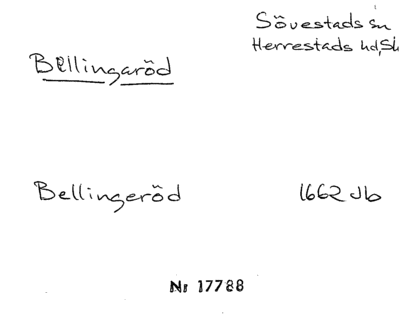 Sövestads sn
Herrestads hd, Sk
Bellingaröd
Bellingeröd 1662 Jb
Nr 17788